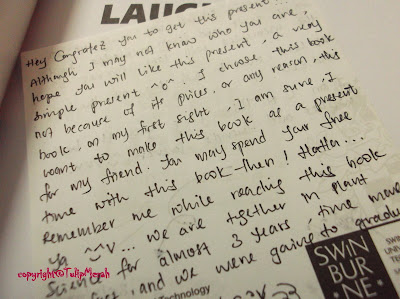 LAUG
Hey Congratez you to get this present...
Although I may not know who you are,
hope you will like this present, a very
simple present ^o^. I choose this book
not because of its prices, or any reason, this
book, on my first sight, I am sure, I
want to make this book as a present
for my friend. You may spend your free
time with this book then! Haha...
Remember me while reading this book
ya ^^v... we are together in plant
science for almost 3 years, time move
fast, and we were going to gradu
Technology
SWIN
BUR
NE
SWIN
UNIV
TECH
copyright@TulipMerah